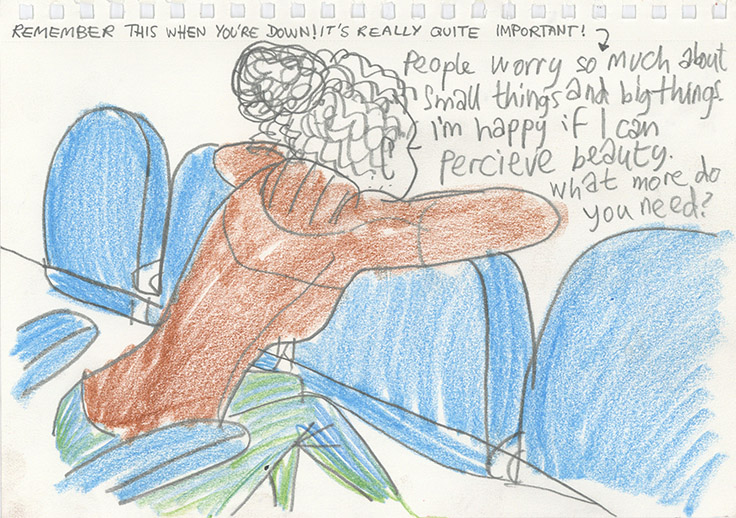 REMEMBER THIS WHEN YOU'RE DOWN! IT'S REALLY QUITE IMPORTANT!
People worry so much about
small things and big things.
i'm happy if I can
percieve beauty.
what more do
you need?